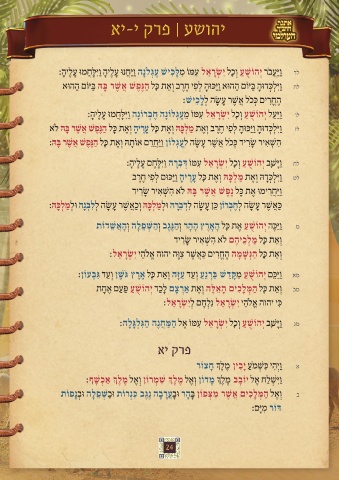 יהושע | פרק י-יא
לד וַיַּעֲבֹר יְהוֹשֻׁעַ וְכָל יִשְׂרָאֵל עִמּוֹ מִלָּכִישׁ עֶגְלֹנָה וַיַּחֲנוּ עָלֶיהָ וַיִּלָּחֲמוּ עָלֶיהָ:
לה וַיִּלְכְּדוּהָ בַּיּוֹם הַהוּא וַיַּכּוּהָ לְפִי חֶרֶב וְאֵת כָּל הַנֶּפֶשׁ אֲשֶׁר בָּהּ בַּיּוֹם הַהוּא
הֶחֱרִים כְּכֹל אֲשֶׁר עָשָׂה לְלָכִישׁ:
לו וַיַּעַל יְהוֹשֻׁעַ וְכָל יִשְׂרָאֵל עִמּוֹ מֵעֶגְלוֹנָה חֶבְרוֹנָה וַיִּלָּחֲמוּ עָלֶיהָ:
לז וַיִּלְכְּדוּהָ וַיַּכּוּהָ לְפִי חֶרֶב וְאֶת מַלְכָּהּ וְאֶת כָּל עָרֶיהָ וְאֶת כָּל הַנֶּפֶשׁ אֲשֶׁר בָּהּ לֹא
הִשְׁאִיר שָׂרִיד כְּכֹל אֲשֶׁר עָשָׂה לְעֶגְלוֹן וַיַּחֲרֵם אוֹתָהּ וְאֶת כָּל הַנֶּפֶשׁ אֲשֶׁר בָּהּ:
לח וַיָּשָׁב יְהוֹשֻׁעַ וְכָל יִשְׂרָאֵל עִמּוֹ דְּבִרָה וַיִּלָּחֶם עָלֶיהָ:
לט וַיִּלְכְּדָהּ וְאֶת מַלְכָּהּ וְאֶת כָּל עָרֶיהָ וַיַּכּוּם לְפִי חֶרֶב
וַיַּחֲרִימוּ אֶת כָּל נֶפֶשׁ אֲשֶׁר בָּהּ לֹא הִשְׁאִיר שָׂרִיד
כַּאֲשֶׁר עָשָׂה לְחֶבְרוֹן כֵּן עָשָׂה לִדְבִרָה וּלְמַלְכָּהּ וְכַאֲשֶׁר עָשָׂה לְלִבְנָה וּלְמַלְכָּהּ:
מ וַיַּכֶּה יְהוֹשֻׁעַ אֶת כָּל הָאָרֶץ הָהָר וְהַנֶּגֶב וְהַשְּׁפֵלָה וְהָאֲשֵׁדוֹת
וְאֵת כָּל מַלְכֵיהֶם לֹא הִשְׁאִיר שָׂרִיד
וְאֵת כָּל הַנְּשָׁמָה הֶחֱרִים כַּאֲשֶׁר צִוָּה יהוה אֱלֹהֵי יִשְׂרָאֵל:
מא וַיַּכֵּם יְהוֹשֻׁעַ מִקָּדֵשׁ בַּרְנֵעַ וְעַד עַזָּה וְאֵת כָּל אֶרֶץ גֹּשֶׁן וְעַד גִּבְעוֹן:
מב וְאֵת כָּל הַמְּלָכִים הָאֵלֶּה וְאֶת אַרְצָם לָכַד יְהוֹשֻׁעַ פַּעַם אֶחָת
כִּי יהוה אֱלֹהֵי יִשְׂרָאֵל נִלְחָם לְיִשְׂרָאֵל:
מג וַיָּשָׁב יְהוֹשֻׁעַ וְכָל יִשְׂרָאֵל עִמּוֹ אֶל הַמַּחֲנֶה הַגִּלְגָּלָה:
פרק יא
א וַיְהִי כִּשְׁמֹעַ יָבִין מֶלֶךְ חָצוֹר
וַיִּשְׁלַח אֶל יוֹבָב מֶלֶךְ מָדוֹן וְאֶל מֶלֶךְ שִׁמְרוֹן וְאֶל מֶלֶךְ אַכְשָׁף:
ב וְאֶל הַמְּלָכִים אֲשֶׁר מִצְּפוֹן בָּהָר וּבָעֲרָבָה נֶגֶב כִּנְרוֹת וּבַשְּׁפֵלָה וּבְנָפוֹת
דּוֹר מִיָּם:
24